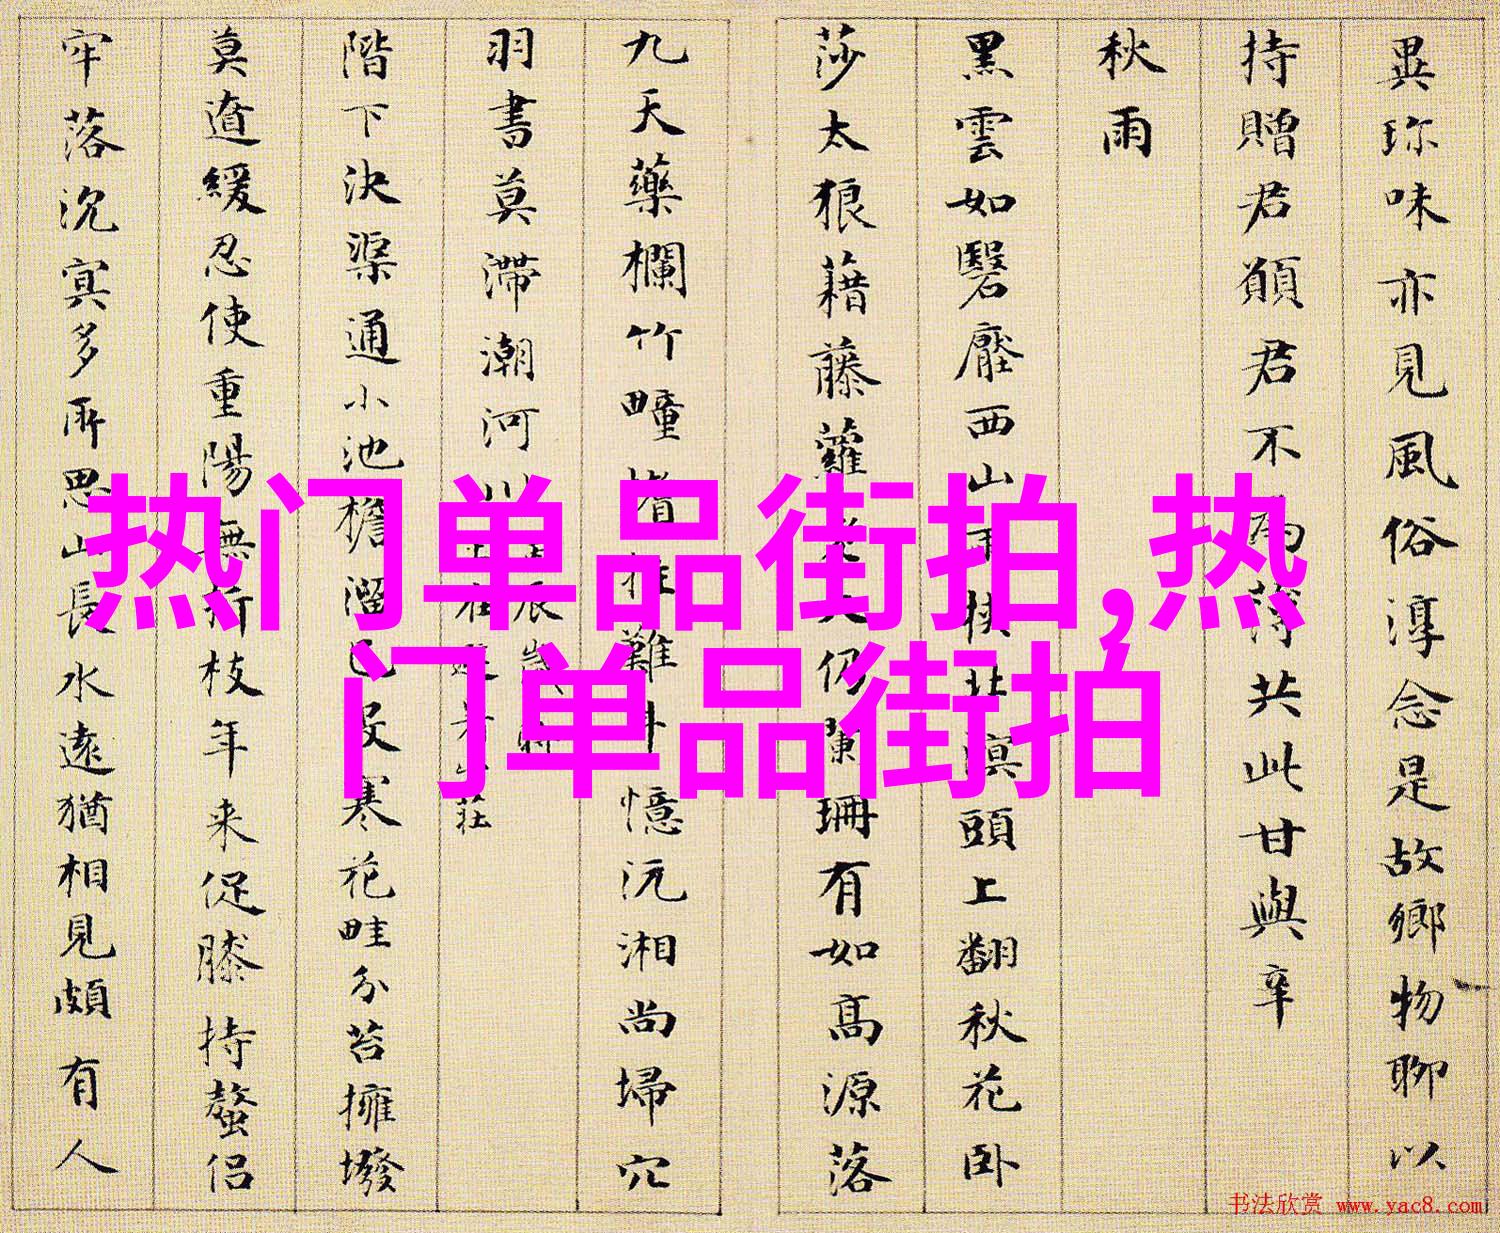 異珎味亦見風俗淳念是故鄉物聊以
持贈君願君不
薄共此甘與辛
秋雨
黑雲如翳壓西山
頭上翻秋花卧
莎太狼藉藤蘿
仍闌珊有如高源落
九天藥欄竹疃
難
憶沅湘尚埽穴
羽書莫滯潮河川
莊
階下決渠通小池檐溜已
寒花畦分苔擁墢
莫遒緩忍使重陽無折枝年来促膝持螯侣
牢落沉冥多所思山長水遠猶相見頗有人
热门单品街拍,热
门单品街拍
书法欣赏 www.yac8.com